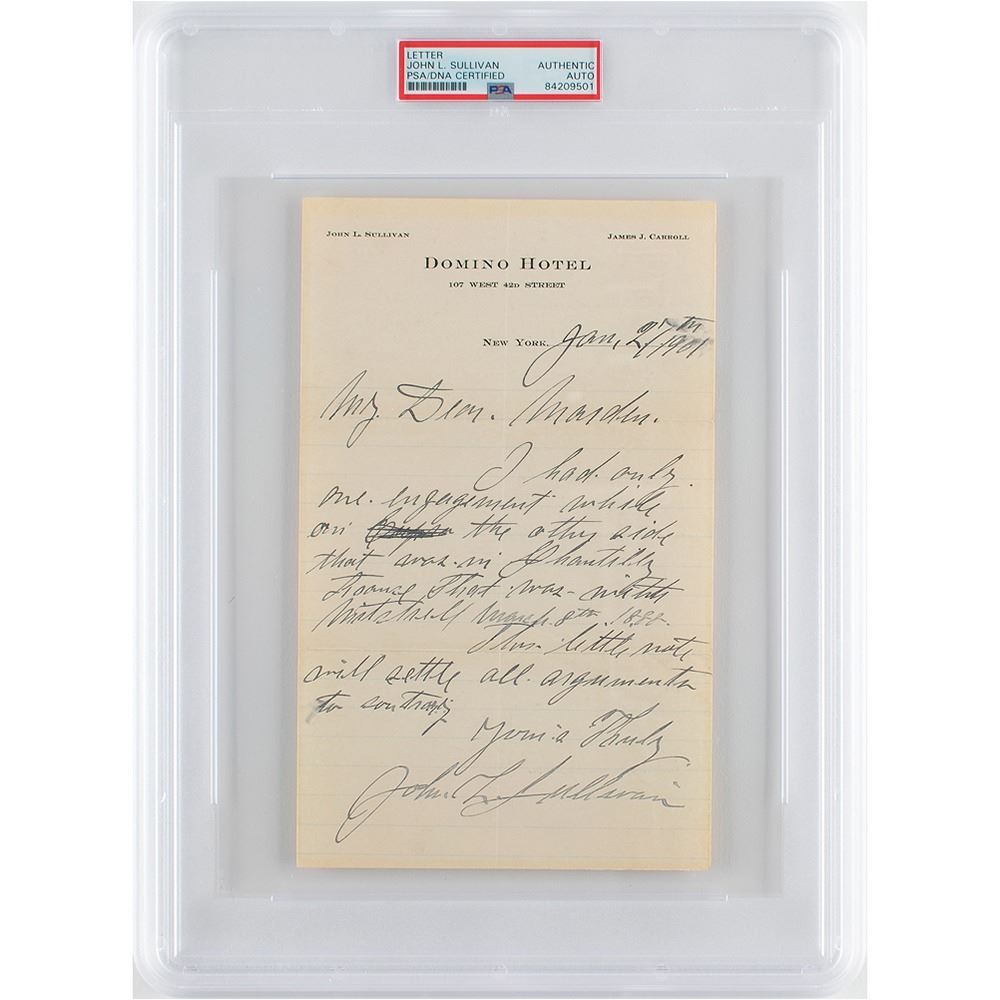 LETTER
JOHN L. SULLIVAN AUTHENTIC
PSA/DNA CERTIFIED AUTO
PSA 84209501
JOHN L. SULLIVAN JAMES J. CARROLL
DOMINO HOTEL
107 WEST 42D STREET
NEW YORK. Jan, 27th 1901
My. Dear. Marden.
I had. only.
one. engagement while
on the other side
that was. in Chantilly
France that was - with
Mitchell March. 8th. 1888.
This. little note
will settle all. arguments
to contrary
Yours Truly
John. L. Sullivan